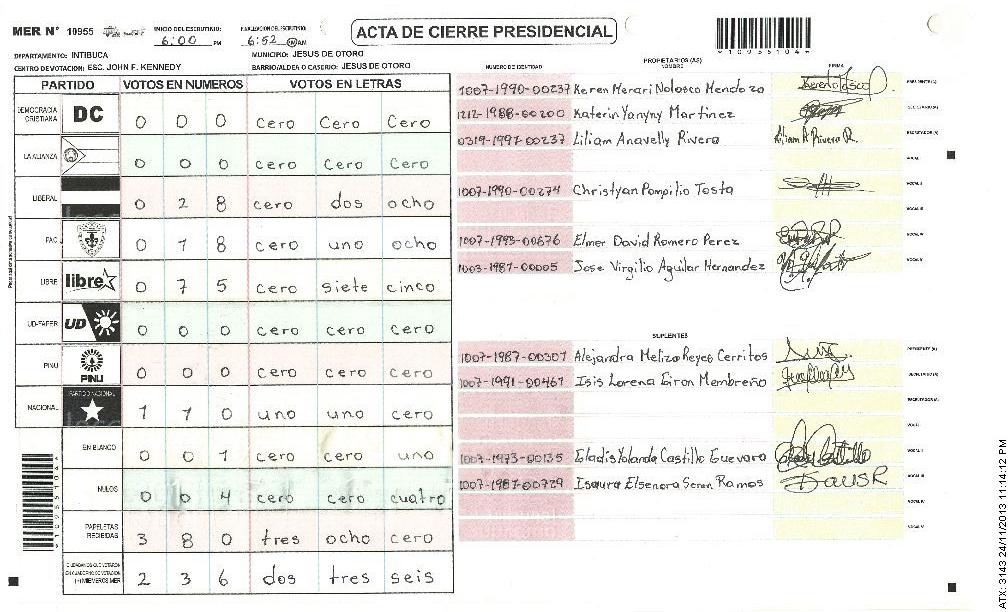 MER N° 10955
INICIO DEL ESCRUTINIO: 6:00 PM
FINALIZACION DEL ESCRUTINIO: 6:52 PM AM
ACTA DE CIERRE PRESIDENCIAL
DEPARTAMENTO: INTIBUCA
MUNICIPIO: JESUS DE OTORO
CENTRO DE VOTACION: ESC. JOHN F. KENNEDY
BARRIO/ALDEA O CASERIO: JESUS DE OTORO
PARTIDO VOTOS EN NUMEROS VOTOS EN LETRAS
DEMOCRACIA CRISTIANA DC 0 0 0 cero cero cero
LA ALIANZA 0 0 0 cero cero cero
LIBERAL 0 2 8 cero dos ocho
PAC 0 1 8 cero uno ocho
LIBRE libre 0 7 5 cero siete cinco
UD-FAPER UD 0 0 0 cero cero cero
PINU PINU 0 0 0 cero cero cero
NACIONAL PARTIDO NACIONAL 1 1 0 uno uno cero
EN BLANCO 0 0 1 cero cero uno
NULOS 0 0 4 cero cero cuatro
PAPELETAS RECIBIDAS 3 8 0 tres ocho cero
CIUDADANOS QUE VOTARON EN CUADERNO DE VOTACION (+) MIEMBROS MER 2 3 6 dos tres seis
PROPIETARIOS (AS)
NUMERO DE IDENTIDAD NOMBRE FIRMA
1007-1990-00237 Keren Merari Nolasco Mendozo PRESIDENTE (A)
1212-1988-00200 Katerin Yanyny Martinez SECRETARIO (A)
0319-1997-00237 Liliam Anavelly Rivera Liliam A Rivera R. ESCRUTADOR (A)
VOCAL I
1007-1990-00274 Christyan Pompilio Tosta VOCAL II
VOCAL III
1007-1993-00676 Elmer David Romero Perez VOCAL IV
1003-1987-00005 Jose Virgilio Aguilar Hernandez VOCAL V
SUPLENTES
1007-1987-00307 Alejandra Meliza Reyes Cerritos PRESIDENTE (A)
1007-1991-00467 Isis Lorena Giron Membreño SECRETARIO (A)
ESCRUTADOR (A)
VOCAL I
1007-1973-00135 Gladis Yolanda Castillo Guevara VOCAL II
1007-1987-00729 Isaura Elsenora Seren Ramos VOCAL III
VOCAL IV
VOCAL V
ATX: 3143 24/11/2013 11:14:12 PM